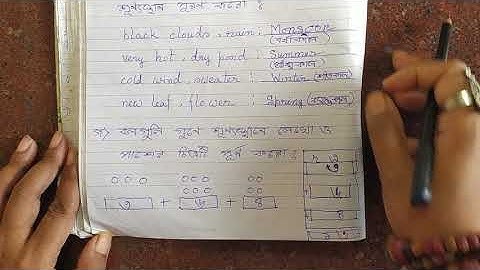 শূন্যস্থান পূরণ করো :
black clouds, rain : Monsoon (বর্ষাকাল)
very hot, dry pond : Summer (গ্রীষ্মকাল)
cold wind, sweater : Winter (শীতকাল)
new leaf, flower : Spring (বসন্তকাল)
গুনে শূন্যস্থানে লেখো ও
পাশের পূর্ণ করো :
৩ + ৬ + ৪